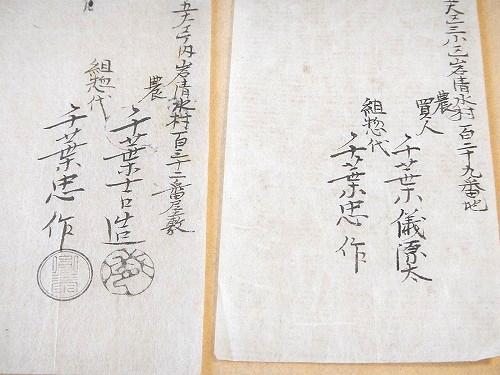 大区三小区岩清水村百二十九番地
農
買人
千葉儀源太
組惣代
千葉忠作
五大区
内岩清水村百三十二番屋敷
農
千葉吉造
組惣代
千葉忠作